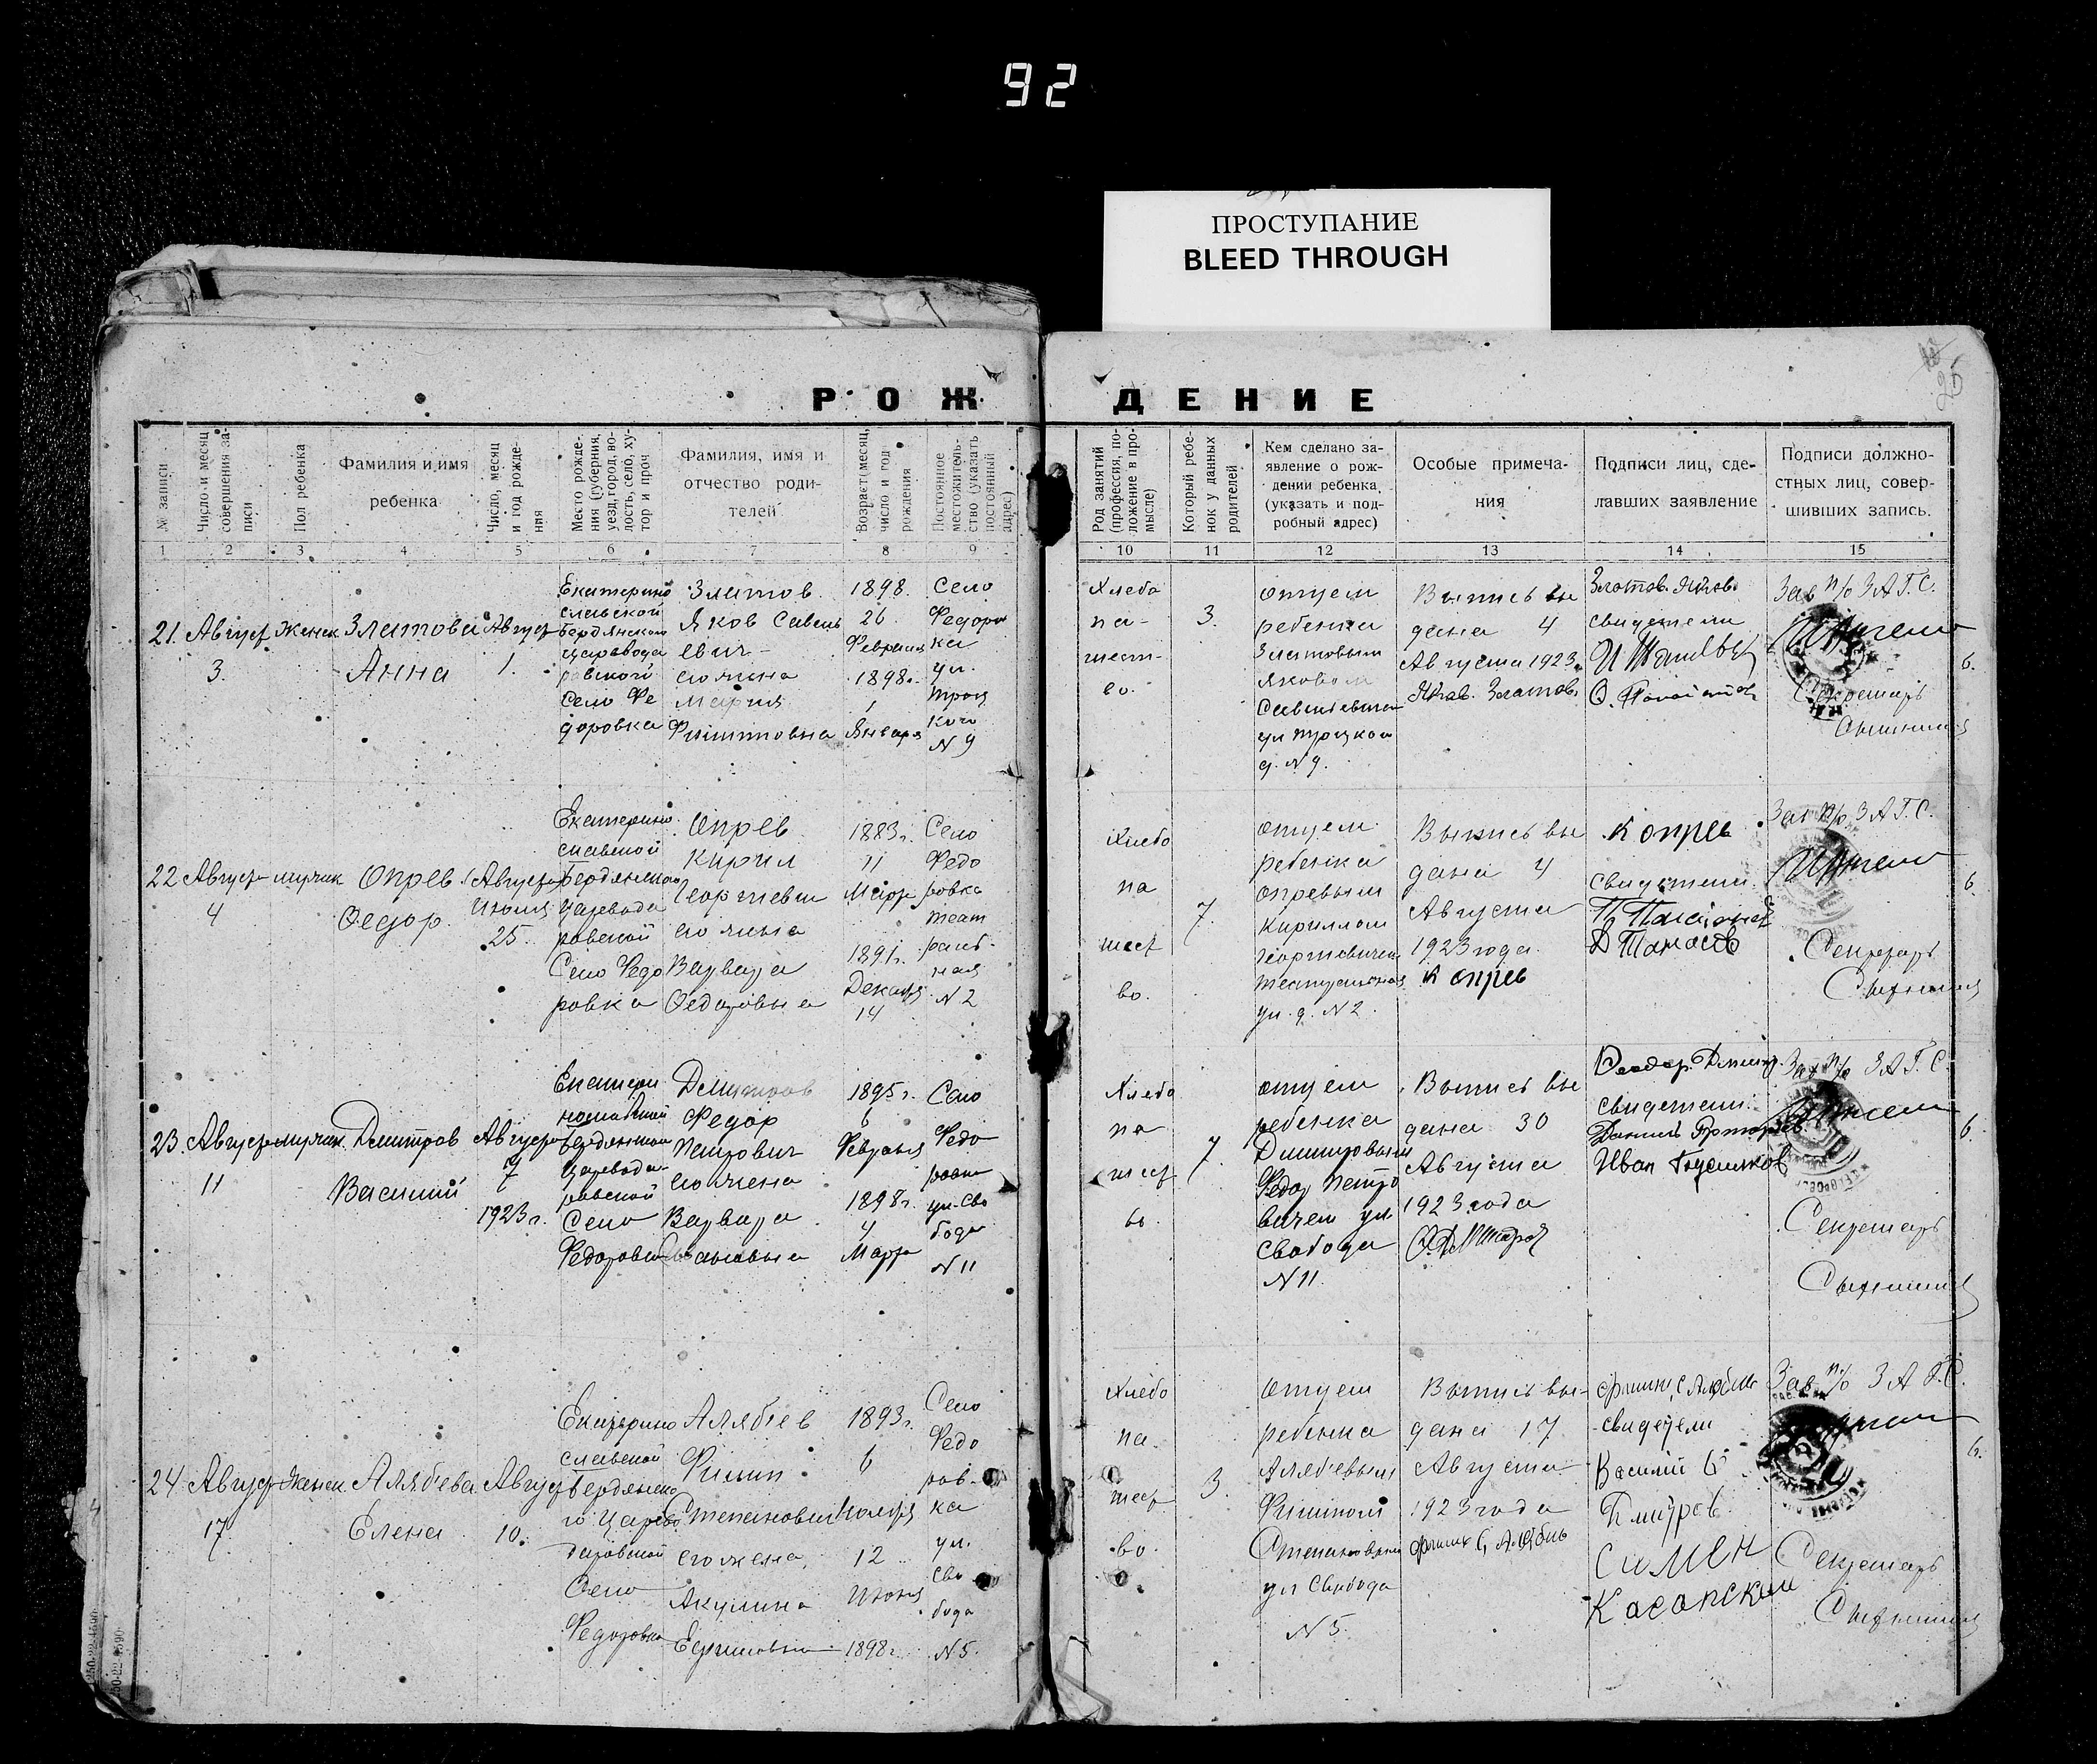 92
ПРОСТУПАНИЕ
BLEED THROUGH
25
РОЖДЕНИЕ
№ записи
Число и месяц совершения записи
Пол ребенка
Фамилия и имя
ребенка
Число, месяц и год рождения
Место рождения (губерния, уезд, город, волость, село, хутор и проч
Фамилия, имя и
отчество роди-
телей
Возраст: месяц, число и год рождения
Постоянное местожительство (указать постоянный адрес)
Род занятий (профессия, положение в промысле)
Который ребенок у данных родителей
Кем сделано за-
явление о рож-
дении ребенка
(указать и под-
робный адрес)
Особые примеча-
ния
Подписи лиц, сде-
лавших заявление
Подписи должно-
стных лиц, совер-
шивших запись.
1 2 3 4 5 6 7 8 9 10 11 12 13 14 15
21. Август
3.
Женск
Златова
Анна
Август
1.
Екатерино
славской
Бердянском
Царевода
ровской
Село Фе
доровка
Златов
Яков Савель
евич
его жена
Мария
Филипповна
1898.
26
Февраля
1898.
1
Января
Село
Федоров
ка
ул.
Троц
кого
N 9
Хлебо
па-
шест-
во.
3.
отцем
ребенка
Златовым
Яковом
Савельевич
ул Троцкого
д. N 9.
Выпись вы
дана 4
Августа 1923
Яков. Златов.
Златов. Яков.
свидетели
Зав п/о ЗАГС.
Секретарь
б.
22 Август
4
мужск
Опрев
Федор.
Август
Июля
25.
Екатерино
славской
Бердянском
Царевода
ровской
Село Федо
ровка
Опрев
Кирил
Георгиевич
его жена
Варвара
Федоровна
1883г.
11
Март
1891г.
Декабря
14
Село
Федо
ровка
театральная
N 2
Хлебо
па
шест
во.
7.
отцем
ребенка
Опревым
Кириллом
Георгиевичем
театральная
ул. д. N 2.
Выпись вы
дана 4
Августа
1923 года.
К Опрев
К Опрев
свидетели.
Д Танасов
Зав п/о ЗАГС.
Секретарь
б.
23. Август
11
мужск.
Дмитров
Василий
Август
7
1923 г.
Екатери
нославской
Бердянском
Царевода-
ровской
Село
Федоровка
Дмитров
Федор
Петрович
его жена
Варвара
1895 г.
6
Февраля
1898 г.
4
Март
Село
Федо
ровка
ул. Сво
бода
N 11
Хлебо
па
шест
во.
7.
отцем
ребенка
Дмитровым
Федор Петро
вичем ул.
Свобода
N 11.
Выпись вы
дана 30
Августа
1923 года
Феодор. Дмитр.
свидетели:
Иван
Зав п/о ЗАГС.
Секретарь
б.
24. Август
17.
Женск.
Алябева
Елена
Август
10.
Екатерино
славской
Бердянско
го Царево
даровской
Село
Федоровка
Алябьев
Филип
Степанович
его жена
Акулина
Ефимовна
1893 г.
6
Ноября
12
Июня
1898 г.
Село
Федо
ров-
ка
ул.
Сво
бода
N 5.
Хлебо
па.
шест
во.
3.
отцем
ребенка
Алябевым
Филипом
Степановичем
ул Свобода
N 5.
Выпись вы-
дана 17
Августа
1923 года
свидетели
Василий
Дмитров
Симен
Зав п/о ЗАГС.
Секретарь
б.